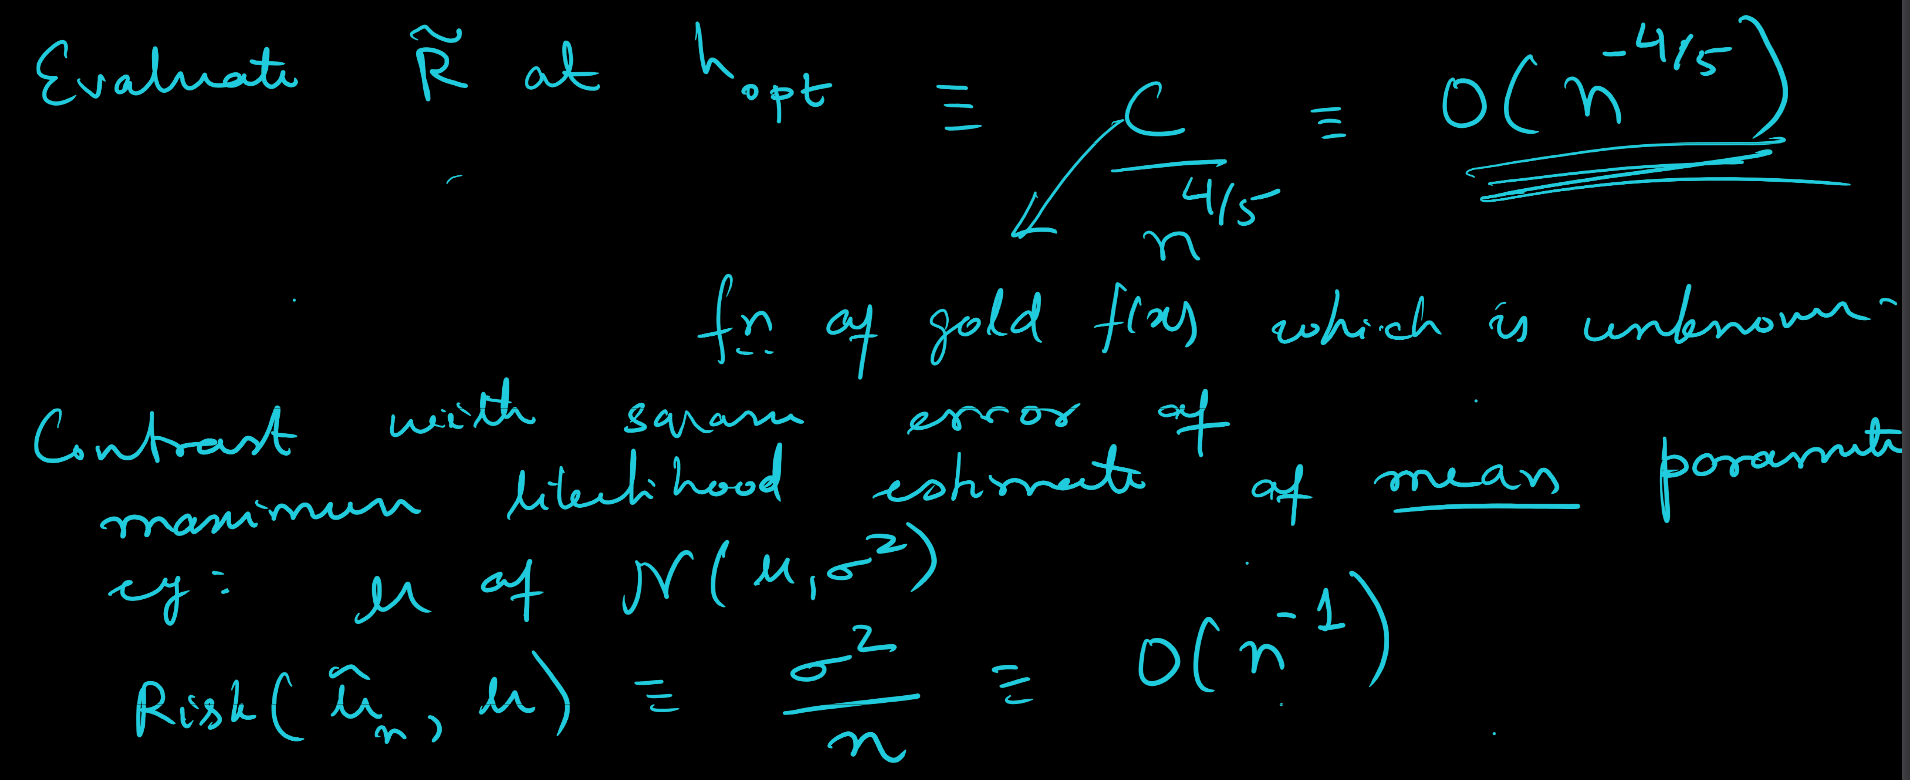 Evaluate R̃ at h_opt ≡ C / n^{4/5} ≡ O(n^{-4/5})
fn of gold f(x) which is unknown.
Contrast with square error of
maximum likelihood estimate of mean paramete
eg: μ of N(μ, σ²)
Risk(μ̂_n, μ) ≡ σ² / n ≡ O(n^{-1})